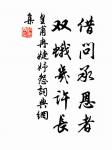 借问承恩者
双蛾几许长
皇甫冉婕妤怨词典网
集